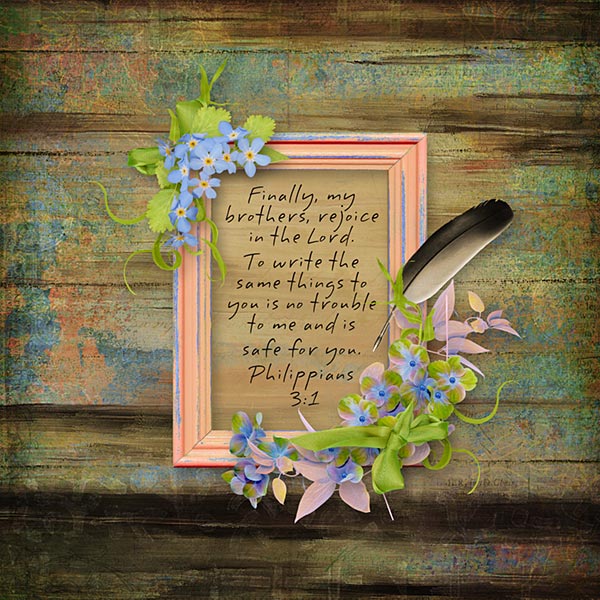 Finally, my
brothers, rejoice
in the Lord.
To write the
same things to
you is no trouble
to me and is
safe for you.
Philippians
3:1